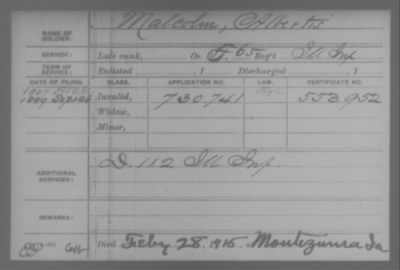 NAME OF SOLDIER: Malcolm, Albertis
SERVICE: Late rank, Co. F. 65 Reg't Ill Inf
TERM OF SERVICE: Enlisted , 1 Discharged , 1
DATE OF FILING. CLASS. APPLICATION NO. LAW. CERTIFICATE NO.
1889 Invalid, 730.741 553.952
Widow,
Minor,
ADDITIONAL SERVICES: D. 112 Ill Inf.
REMARKS:
Died Feby 28. 1915. Montezuma Ia